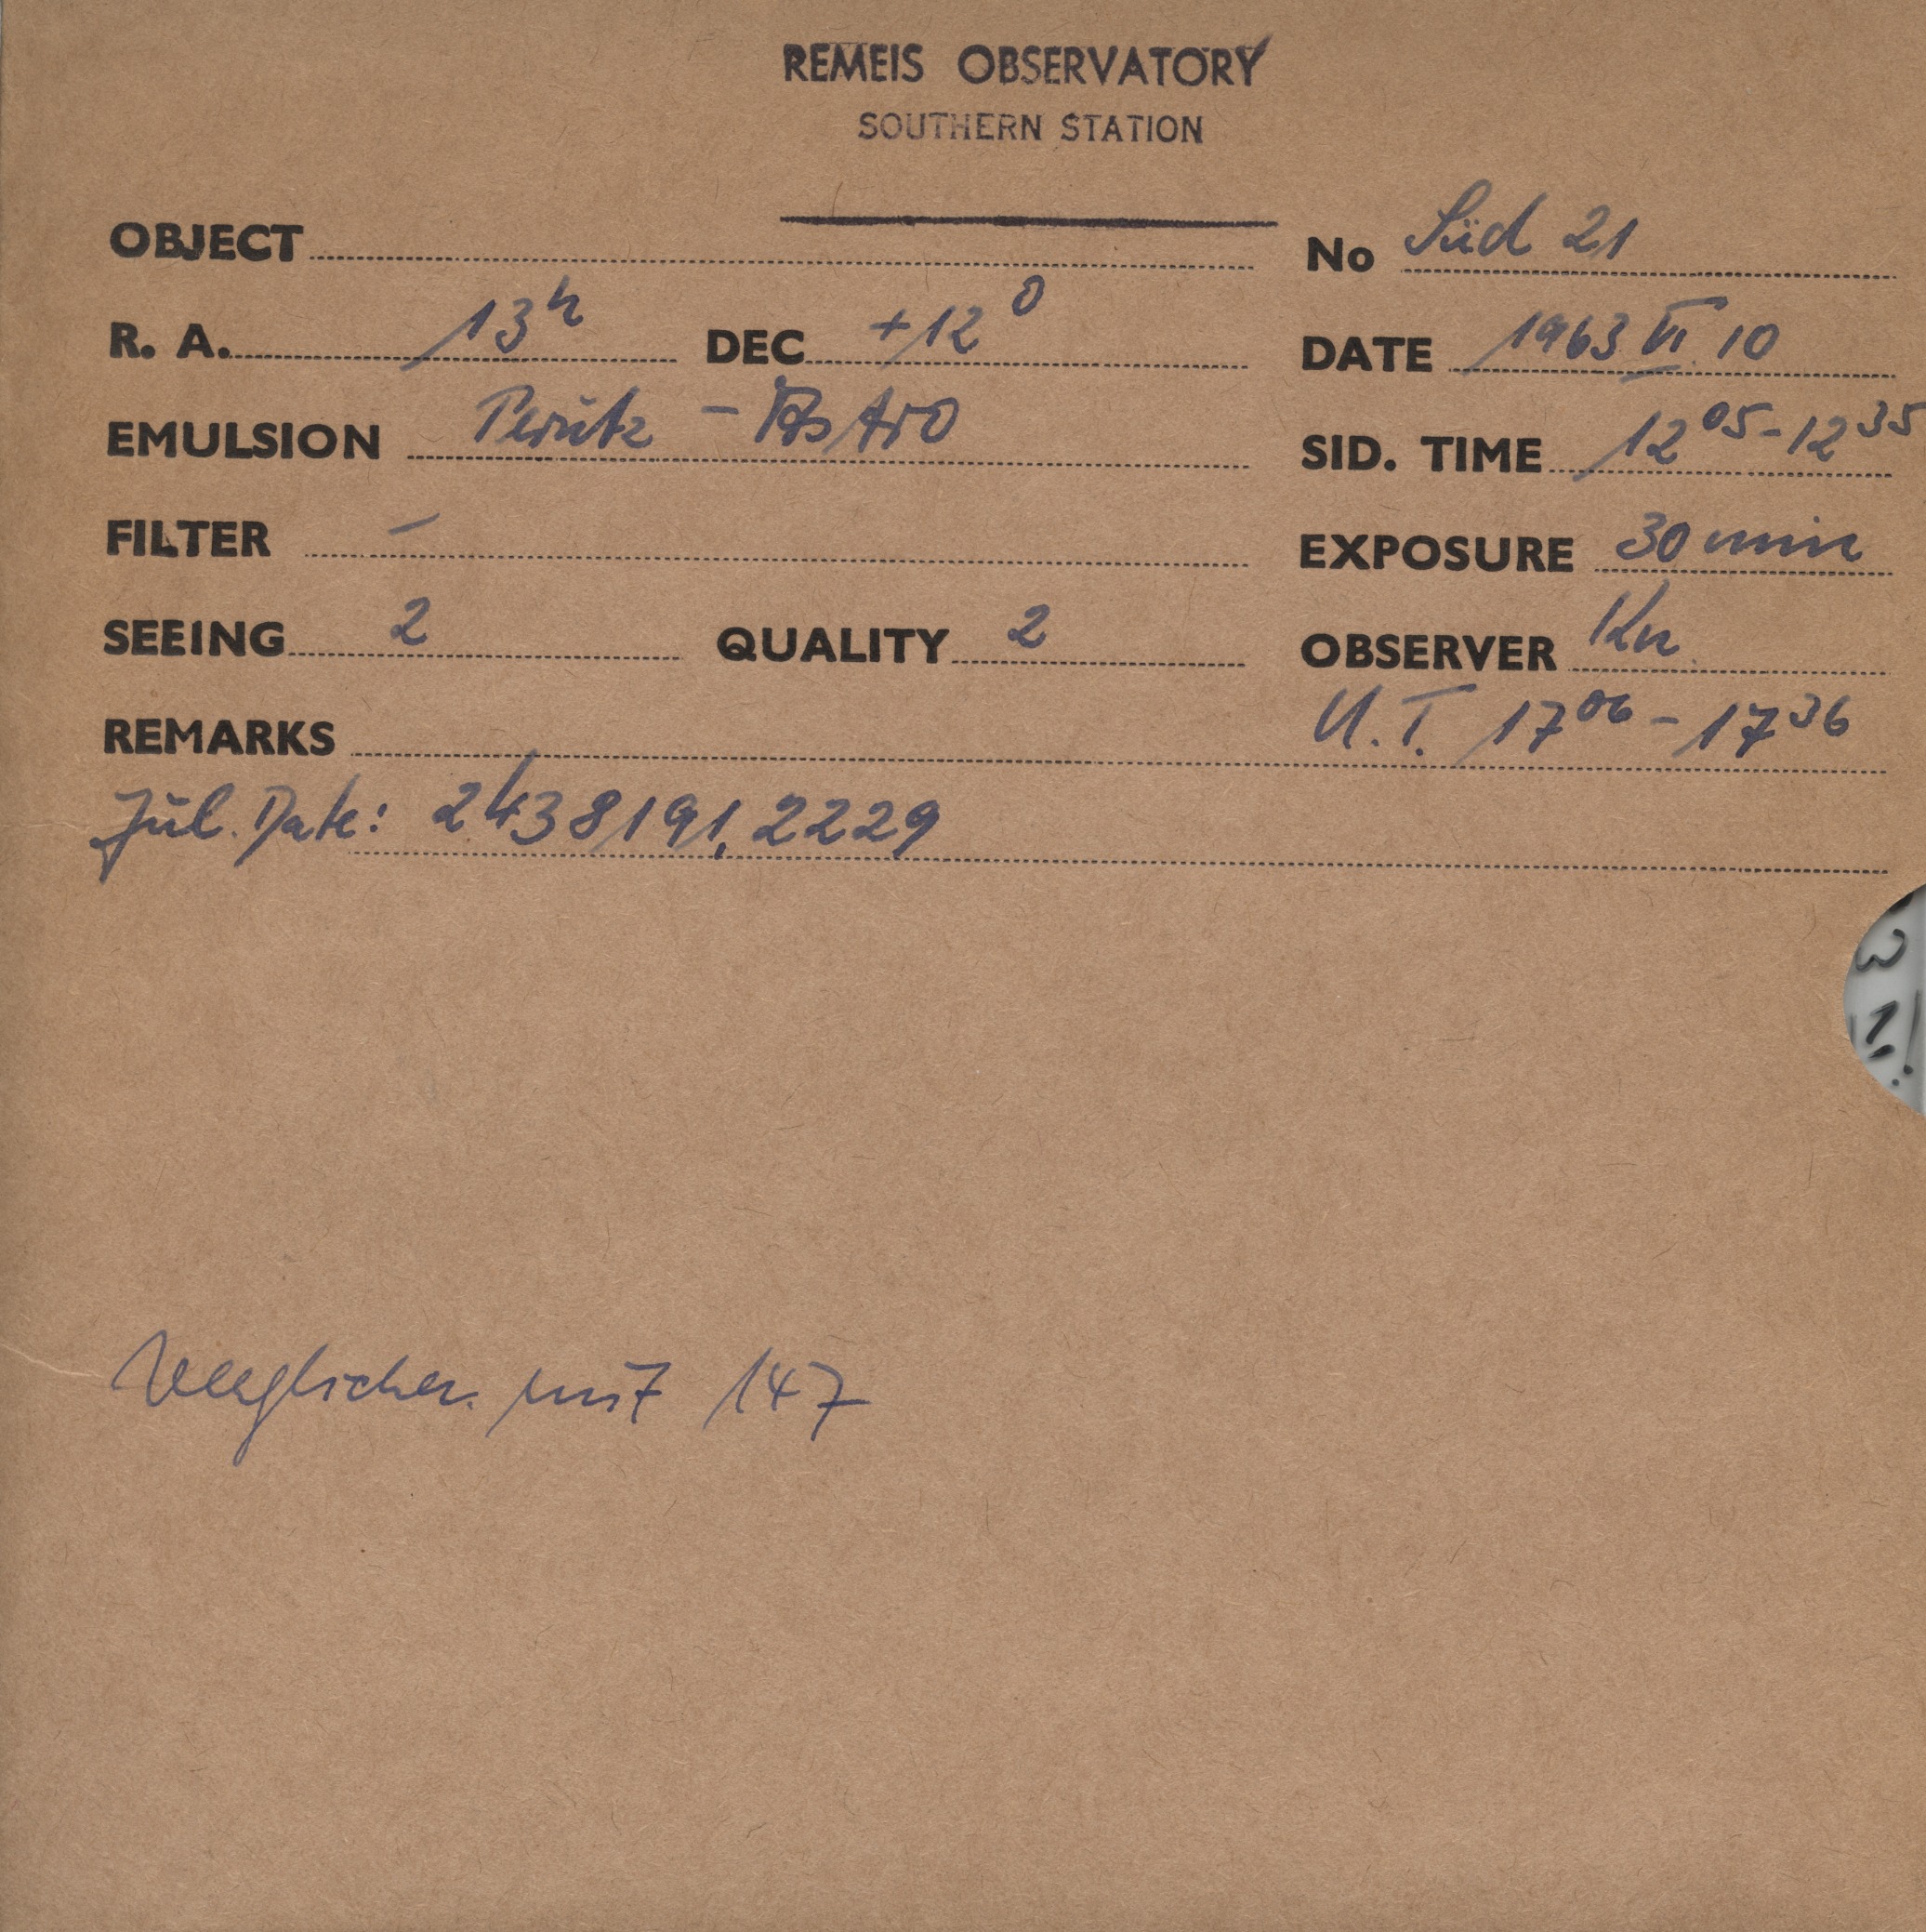 REMEIS OBSERVATORY
SOUTHERN STATION
OBJECT No Süd 21
R. A. 13h DEC +12° DATE 1963 VI 10
EMULSION Perutz - Astro SID. TIME 12 05 - 12 35
FILTER – EXPOSURE 30 min
SEEING 2 QUALITY 2 OBSERVER Kn.
REMARKS U.T. 17 06 - 17 36
Jul. Date: 2438191,2229
verglichen mit 147